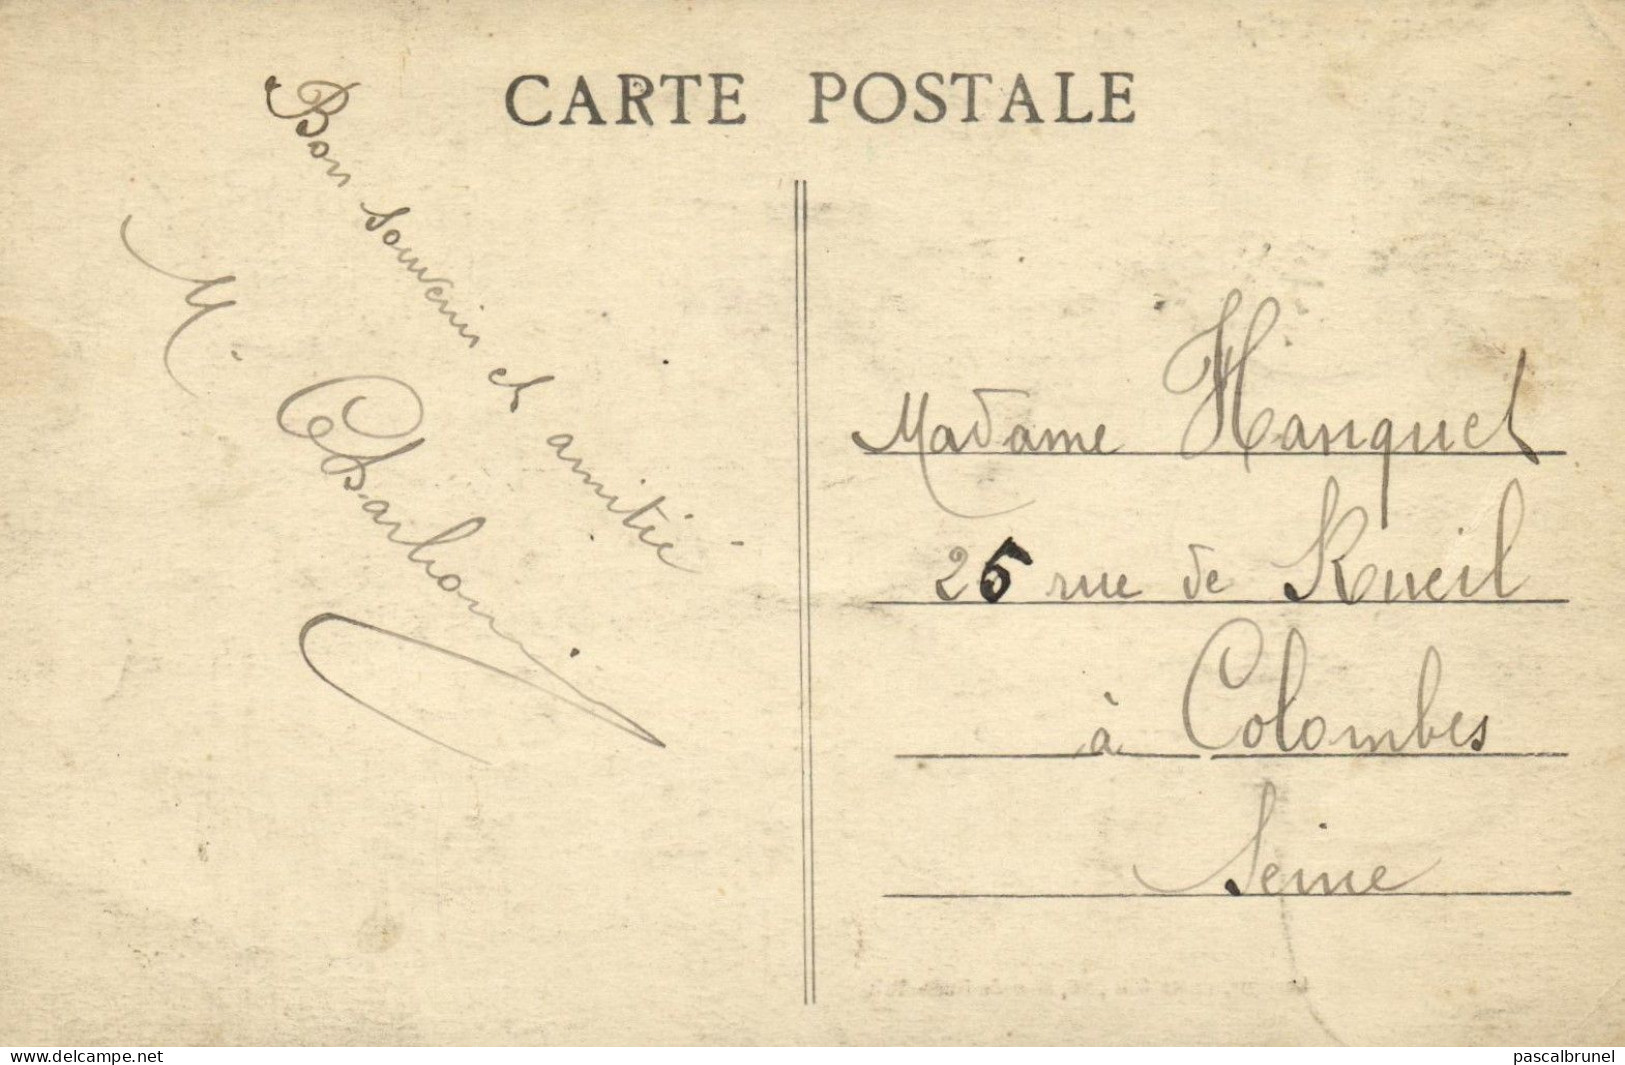 CARTE POSTALE
Bon souvenir et amitié
M.
Madame Hanquet
25 rue de Rueil
à Colombes
Seine
www.delcampe.net
pascalbrunel